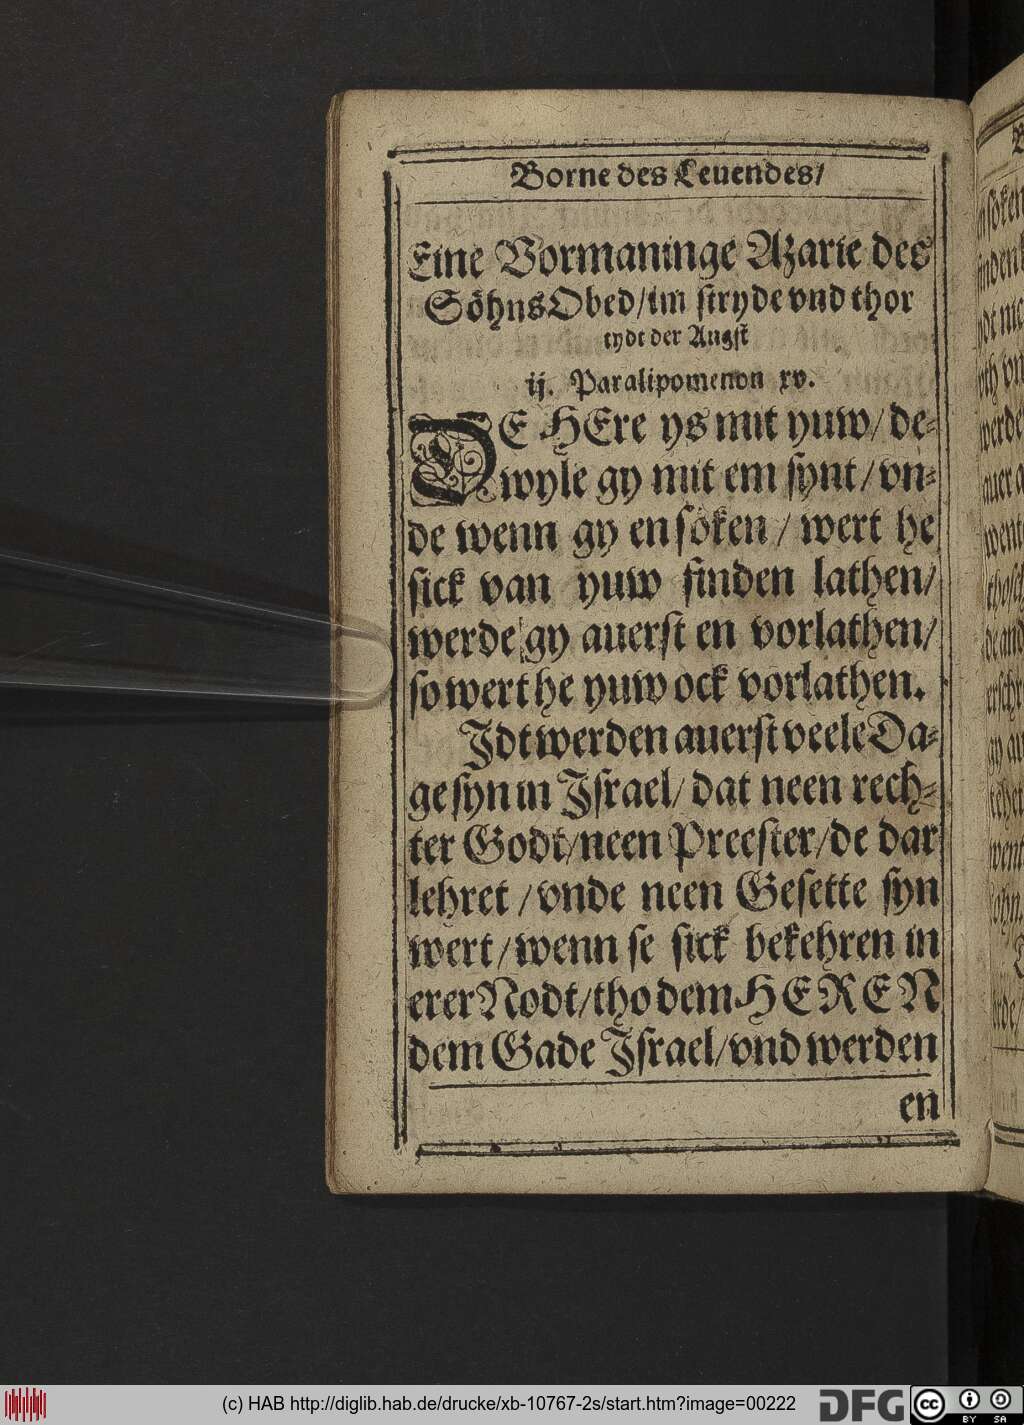 Borne des Leuendes/
Eine Vormaninge Azarie des
Söhns Obed/im stryde vnd thor
tydt der Angst
ij. Paralipomenon xv.
DE HEre ys mit yuw/ de-
wyle gy mit em synt/ vn-
de wenn gy en söken/ wert he
sick van yuw finden lathen/
werde gy auerst en vorlathen/
so wert he yuw ock vorlathen.
Jdt werden auerst veele Da-
ge syn in Jsrael/ dat neen rech-
ter Godt/neen Preester/de dar
lehret/vnde neen Gesette syn
wert/wenn se sick bekehren in
erer Nodt/tho dem HEREN
dem Gade Jsrael/vnd werden
en
(c) HAB http://diglib.hab.de/drucke/xb-10767-2s/start.htm?image=00222
DFG
cc
BY SA